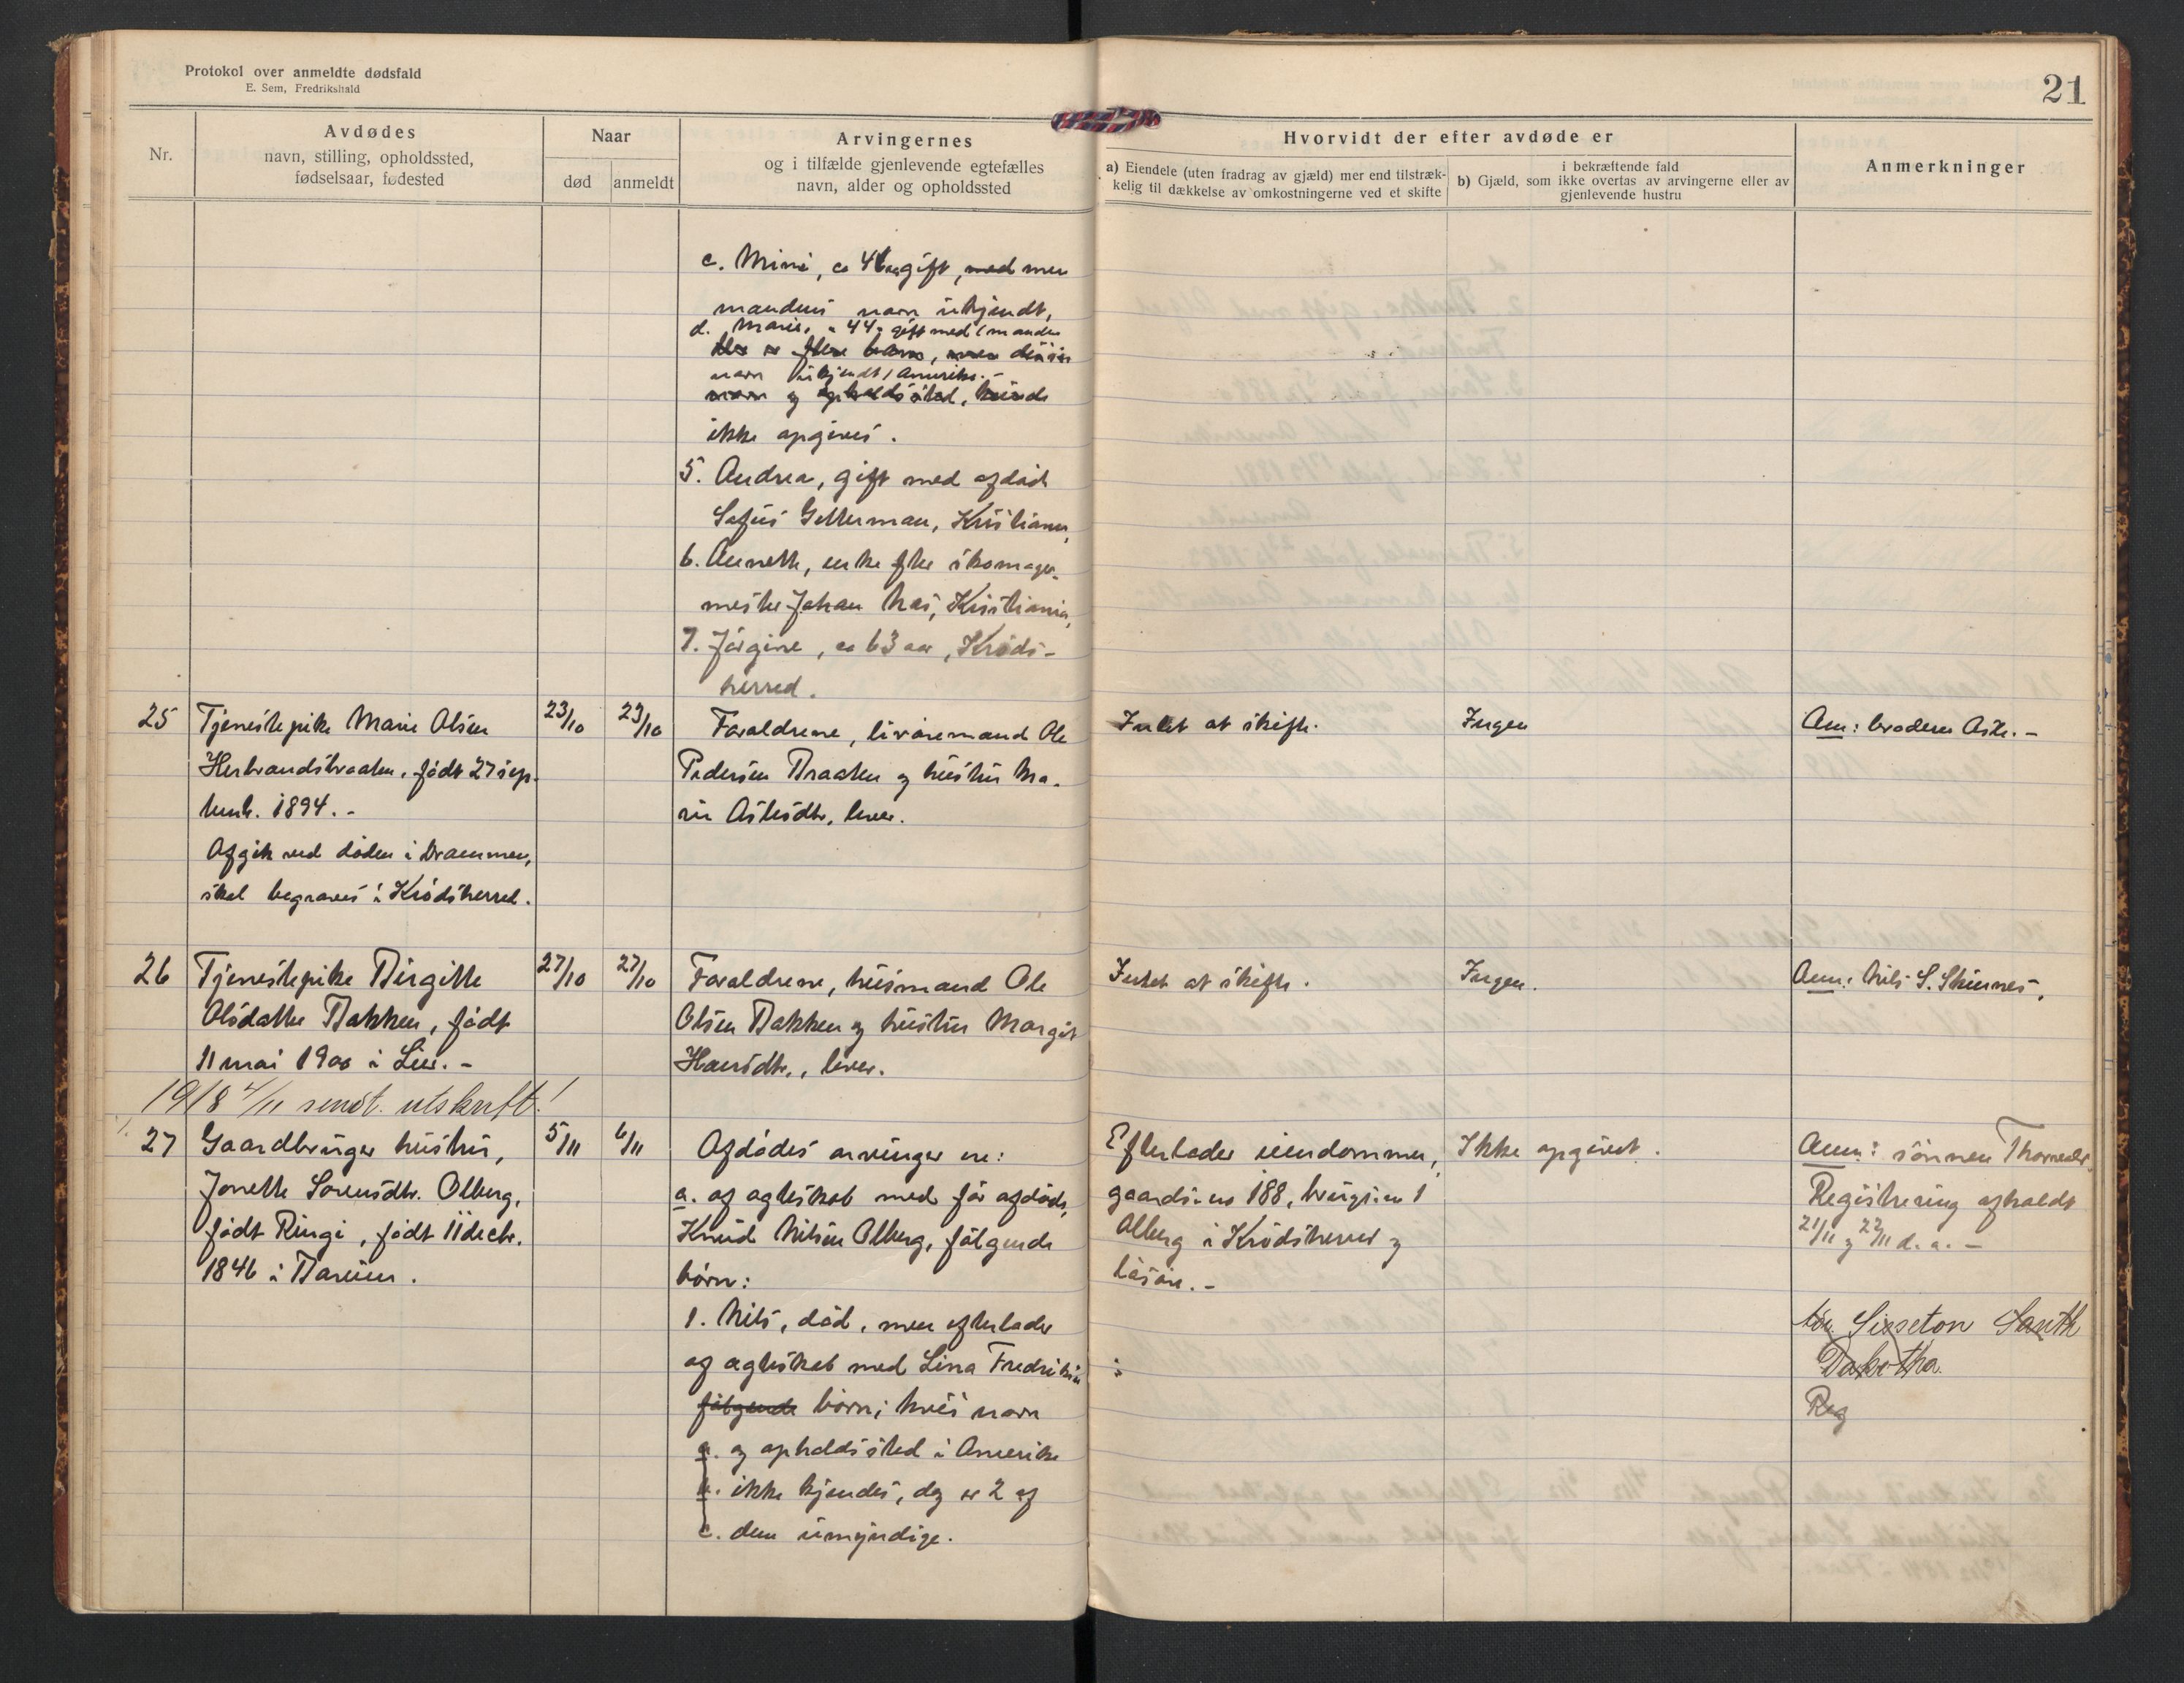 Protokol over anmeldte dødsfald
E. Sem, Fredrikshald
21
Nr.
Avdødes
navn, stilling, opholdssted,
fødselsaar, fødested
Naar
død
anmeldt
Arvingernes
og i tilfælde gjenlevende egtefælles
navn, alder og opholdssted
Hvorvidt der efter avdøde er
a) Eiendele (uten fradrag av gjæld) mer end tilstræk-
kelig til dækkelse av omkostningerne ved et skifte
i bekræftende fald
b) Gjæld, som ikke overtas av arvingerne eller av
gjenlevende hustru
Anmerkninger
c. Mina, ca 46 gift, med men
mandens navn ukjendt,
d. Marie, " 44 " gift med (manden
der er flere barn, men disses
navn ukjendt) Amerika. -
navn og opholdssted, kunde
ikke opgives.
5. Andrea, gift med afdød
Sofus Getterman, Kristiania,
6. Annette, enke efter skomager-
mester Johan Næs, Kristiania,
7. Jörgine, ca 63 aar, Kröds-
herred.
25
Tjenestepike Marie Olsen
Herbrandsbraaten, født 27 sep-
temb. 1894. -
Afgik ved døden i Drammen,
skal begraves i Krödsherred.
23/10
23/10
Forældrene, livöremand Ole
Pedersen Braaten og hustru Ma-
rie Aslesdtr, lever.
Intet at skifte.
Ingen
Anm: broderen Asle. -
26
Tjenestepike Birgitte
Olsdatter Bakken, født
11 mai 1900 i Lier. -
27/10
27/10
Forældrene, husmand Ole
Olsen Bakken og hustru Margit
Hansdtr., lever.
Intet at skifte.
Ingen.
Anm: Nils S. Skinnes,
1918 4/11 sendt. utskrift!
27
Gaardbruger hustru,
Jonette Sorensdtr. Olberg,
født Ringi, født 11 decbr.
1846 i Bærum.
5/11
6/11
Afdødes arvinger er:
a. af ægteskab med før afdøde,
Knud Nilsen Olberg, følgende
børn:
1. Nils, død, men efterlader
af ægteskab med Lina Fredriksen
følgende børn; hvis navn
a. og opholdssted i Amerika
b. ikke kjendes, dog er 2 af
c. dem umyndige.
Efterlader eiendommen,
gaards-no 188, brugs-no 1
Olberg i Krödsherred og
løsøre. -
Ikke opgivet.
Anm: sønnen Thorvald.
Registrering afholdt
21/11 og 22/11 d. a. -
Sisseton South
Dakotha.
Reg